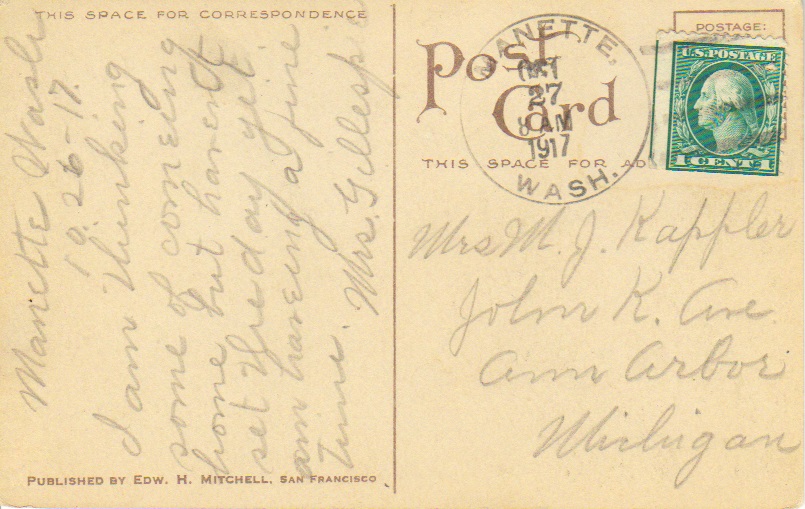 THIS SPACE FOR CORRESPONDENCE
Manette Wash
10-26-17.
I am thinking
some of comeing
home but havent
set the day yet
am haveing a fine
time. Mrs. Gillespie
PUBLISHED BY EDW. H. MITCHELL, SAN FRANCISCO
Post
Card
THIS SPACE FOR AD
MANETTE.
OCT
27
8 AM
1917
WASH.
POSTAGE:
U.S. POSTAGE
1 CENT 1
Mrs M. J. Kappler
John K. Ave
Ann Arbor
Michigan